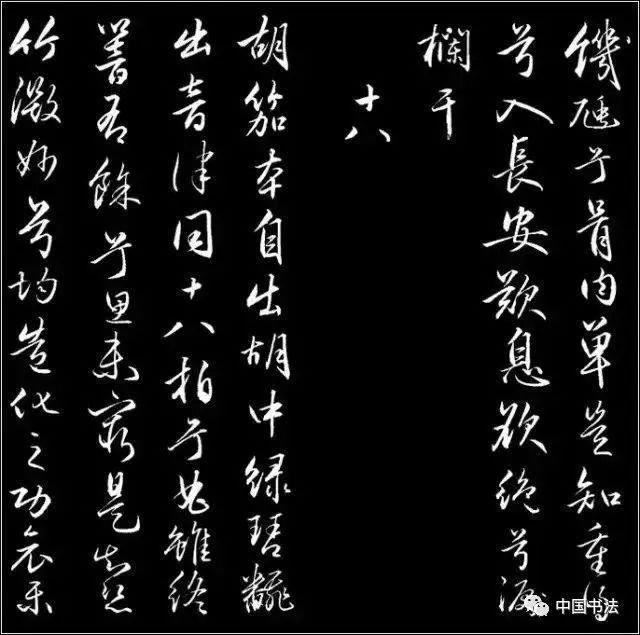 饑兮骨肉单豈知重得
兮入長安歎息欲絶兮淚
欄干
十八
胡笳本自出胡中緑琴翻
出音律同十八拍兮曲雖終
響有餘兮思未窮是知絲
竹微妙兮均造化之功哀樂
中国书法